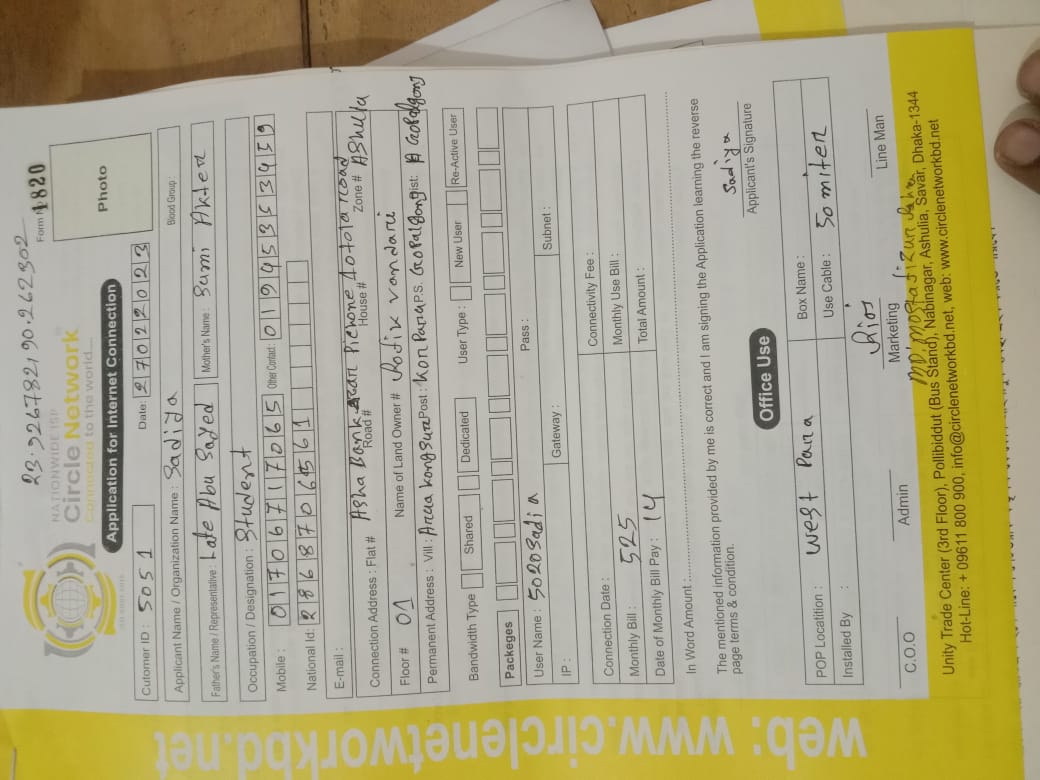 23.926782190.262302
NATIONWIDE ISP
Circle Network
Connected to the world....
Form N 1820
Application for Internet Connection
Photo
Cutomer ID : 5051
Date: 27022023
Applicant Name / Organization Name : Sadiya
Blood Group :
Father's Name / Representative : Late Abu Sayed
Mother's Name : Sumi Akter
Occupation / Designation : Student
Mobile : 01706717065
Other Contact : 01945353459
National Id:
E-mail :
Connection Address : Flat # Asha Bank Road # House # Pichone Aotola road Zone # Ashulia
Floor # 01 Name of Land Owner # Rofik vandari
Permanent Address : Vill : Post : P.S. Gopalgong Dist: Gopalgong
Bandwidth Type Shared Dedicated User Type : New User Re-Active User
Packeges
User Name : 5020sadia Pass :
IP : Gateway : Subnet :
Connection Date : Connectivity Fee :
Monthly Bill : 525 Monthly Use Bill :
Date of Monthly Bill Pay : 14 Total Amount :
In Word Amount :
The mentioned information provided by me is correct and I am signing the Application learning the reverse
page terms & condition.
Sadiya
Applicant's Signature
Office Use
POP Locatition : West Para Box Name :
Installed By : Use Cable : 50 miter
C.O.O Admin Marketing Line Man
Unity Trade Center (3rd Floor), Pollibiddut (Bus Stand), Nabinagar, Ashulia, Savar, Dhaka-1344
Hot-Line: + 09611 800 900, info@circlenetworkbd.net, web: www.circlenetworkbd.net
web: www.circlenetworkbd.net